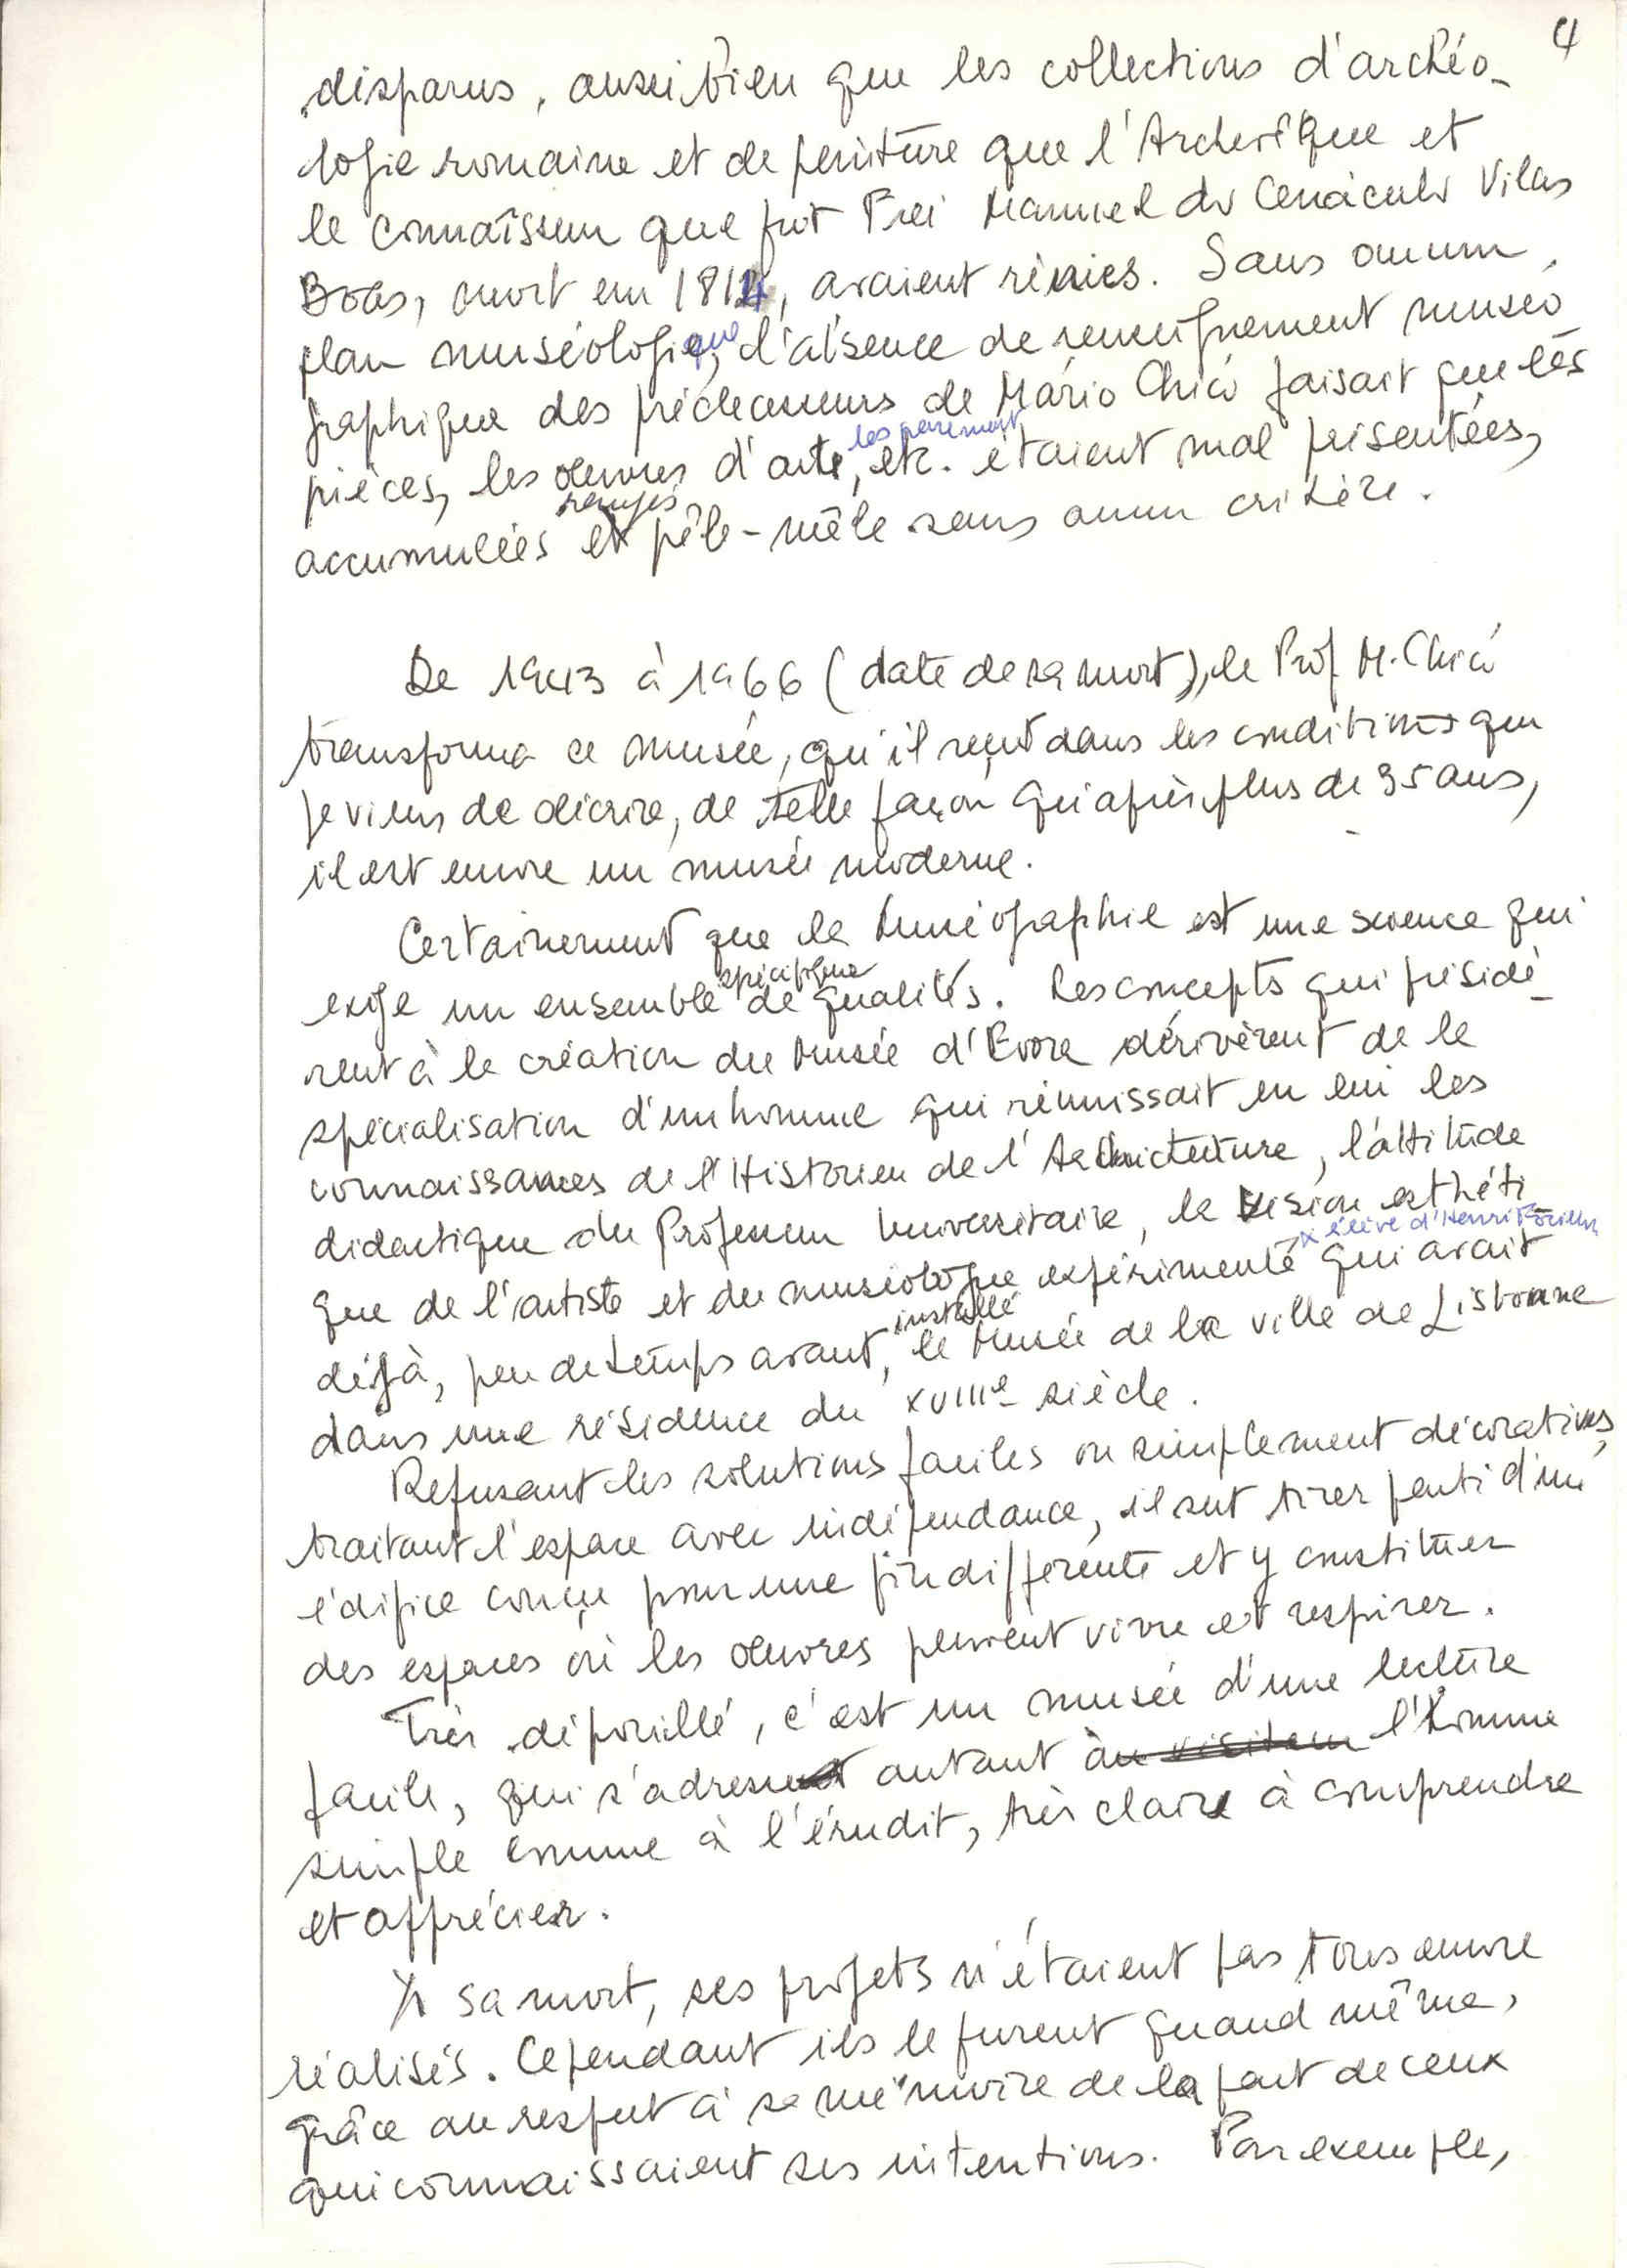 4
disparus, aussi bien que les collections d'archéo-
logie romaine et de peinture que l'Archevêque et
le connaîsseur que fut Frei Manuel do Cenáculo Vilas
Boas, mort em 1814, avaient réunies. Sans aucun
plan muséologique, l'absence de renseignement museo
graphique des prédecesseurs de Mário Chicó faisait que les
pièces, les oeuvres d'arte, les parements etc. étaient mal présentées,
accumulées rangés pêle-mêle sans aucun critère.
De 1943 à 1966 (date de sa mort), le Prof M. Chicó
transforma ce musée, qu'il reçut dans les conditions que
je viens de décrire, de telle façon qu'après plus de 35 ans,
il est encore un musée moderne.
Certainement que la Muséographie est une science qui
exige un ensemble spécifique de qualités. Les concepts qui présidè-
rent à la création du Musée d'Evora dérivèrent de la
spécialisation d'un homme qui réunissait en lui les
connaissances de l'Historien de l'Architecture, l'attitude
didactique du Professeur Universitaire, la vision esthéti-
que de l'artiste et du muséologue expérimenté x élève d'Henri Focillon qui avait
déjà, peu de temps avant, installé le Musée de la ville de Lisbonne
dans une résidence du XVIIIe siècle.
Refusant les solutions faciles ou simplement décoratives,
traitant l'espace avec indépendance, il sut tirer parti d'un
édifice conçu pour une fin differente et y constituer
des espaces où les oeuvres peuvent vivre et respirer.
Très dépouillé, c'est un musée d'une lecture
facile, qui s'adresse autant à l'homme
simple comme à l'érudit, très claire à comprendre
et apprécier.
A sa mort, ses projets n'étaient pas tous encore
réalisés. Cependant ils le furent quand même,
grâce au respect à sa mémoire de la part de ceux
qui connaissaient ses intentions. Par exemple,